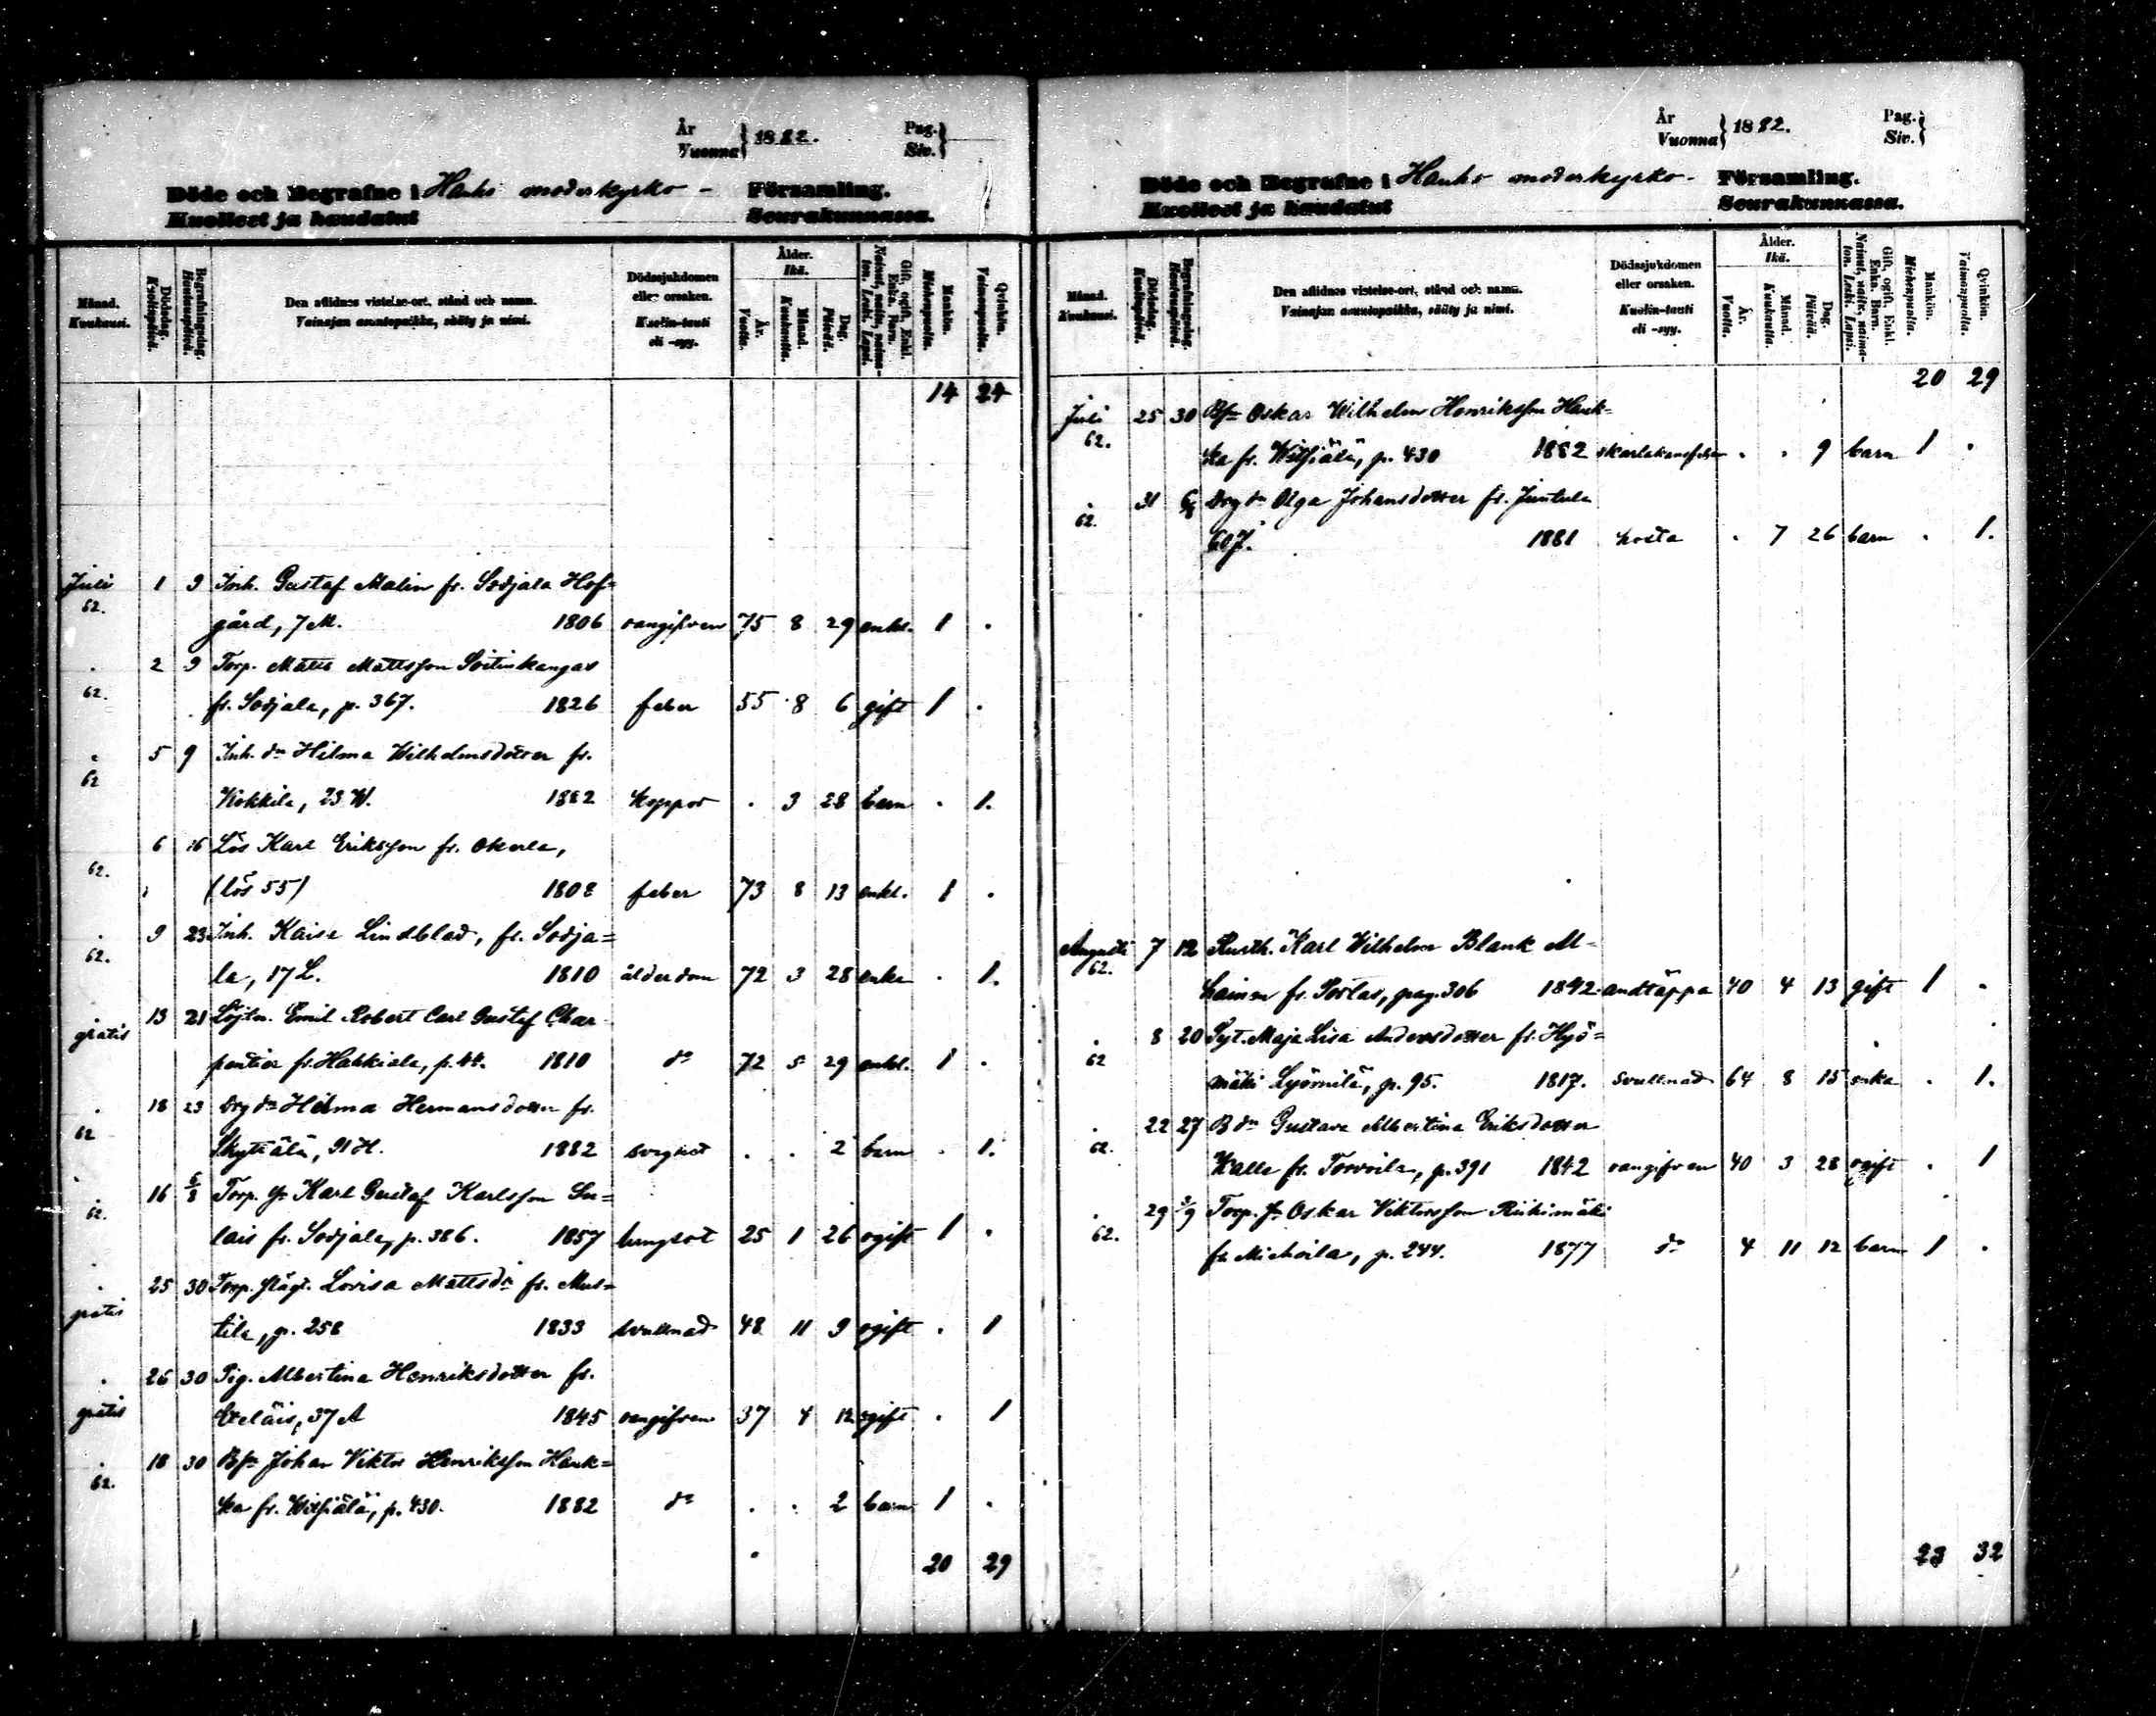 År
Vuonna } 1882.
Pag.
Siv. }
Döde och Begrafne i Hauho moderkyrko- Församling.
Kuolleet ja haudatut Seurakunnassa.
Månad. Kuukausi.
Dödsdag. Kuolinpäivä.
Begrafningsdag. Hautauspäivä.
Den aflidnes vistelse-ort, stånd och namn.
Vainajan asuntopaikka, sääty ja nimi.
Dödssjukdomen eller orsaken.
Kuolin-tauti eli -syy.
Ålder. Ikä.
År. Vuotta.
Månad. Kuukautta.
Dag. Päivää.
Gift, ogift, Enkl. Enka. Barn.
Nainut, naima-ton. Leski. Lapsi.
Mankön. Miehenpuolta.
Qvinkön. Vaimonpuolta.
14 24
Juli 1 9 Inh. Gustaf Malin fr. Sodjala Hof=
62. gård, 7 M. 1806 oangifven 75 8 29 enkl. 1 .
. 2 9 Torp. Matts Mattsson Soitinkangas
62. fr. Sodjala, p. 367. 1826 feber 55 8 6 gift 1 .
. 5 9 Inh. dr Hilma Wilhelmsdotter fr.
62 Kokkila, 23 W. 1882 koppor . 3 28 barn . 1.
6 16 Lös Karl Eriksson fr. Okerla,
62. (lös 55) 1808 feber 73 8 13 enkl. 1 .
. 9 23 Inh. Kaisa Lindblad, fr. Sodja=
62. la, 17 L. 1810 ålderdom 72 3 28 enka . 1.
13 21 Löjtn. Emil Robert Carl Gustaf Char-
gratis pentier fr. Hahkiala, p. 44. 1810 do 72 5 29 enkl. 1 .
. 18 23 Drg dr Hilma Hermansdotter fr.
62 Skyttälä, 91 H. 1882 . . 2 barn . 1.
. 16 6/8 Torp. sr Karl Gustaf Karlsson
62. lais fr. Sodjala, p. 386. 1857 lungsot 25 1 26 ogift 1 .
. 25 30 Torp. Lovisa Mattsdr fr. Mus=
gratis tila, p. 258 1833 svullnad 48 11 9 ogift . 1
. 26 30 Pig. Albertina Henriksdotter fr.
gratis Eteläis, 37 A 1845 oangifven 37 4 12 ogift . 1
. 18 30 Bsr Johan Viktor Henriksson Hauk=
62. ka fr. Witsiälä, p. 430. 1882 do . . 2 barn 1 .
20 29
År
Vuonna } 1882.
Pag.
Siv. }
Döde och Begrafne i Hauho moderkyrko- Församling.
Kuolleet ja haudatut Seurakunnassa.
Månad. Kuukausi.
Dödsdag. Kuolinpäivä.
Begrafningsdag. Hautauspäivä.
Den aflidnes vistelse-ort, stånd och namn.
Vainajan asuntopaikka, sääty ja nimi.
Dödssjukdomen eller orsaken.
Kuolin-tauti eli -syy.
Ålder. Ikä.
År. Vuotta.
Månad. Kuukautta.
Dag. Päivää.
Gift, ogift, Enkl. Enka. Barn.
Nainut, naima-ton. Leski. Lapsi.
Mankön. Miehenpuolta.
Qvinkön. Vaimonpuolta.
20 29
Juli 25 30 Bsr Oskar Wilhelm Henriksson Hauk=
62. ka fr. Witsiälä, p. 430 1882 skarlakansfeber . . 9 barn 1 .
. 31 6/8 Drg dr Olga Johansdotter fr. Juntula
62. 607. 1881 hosta . 7 26 barn . 1.
Augusti 7 12 Rusth. Karl Wilhelm Blank Al-
62. hainen fr. Portas, pag. 306 1842 andtäppa 40 4 13 gift 1 .
. 8 20 Syt. Maja Lisa Andersdotter fr. Hyö=
62 mäki Lyömilä, p. 95. 1817. svullnad 64 8 15 enka . 1.
. 22 27 B dr Gustava Albertina Eriksdotter
62. Kalle fr. Torvoila, p. 391 1842 oangifven 40 3 28 ogift . 1
. 29 3/9 Torp. sr Oskar Viktorsson Riihimäki
62. fr. Miehoila, p. 244. 1877 do 4 11 12 barn 1 .
23 32